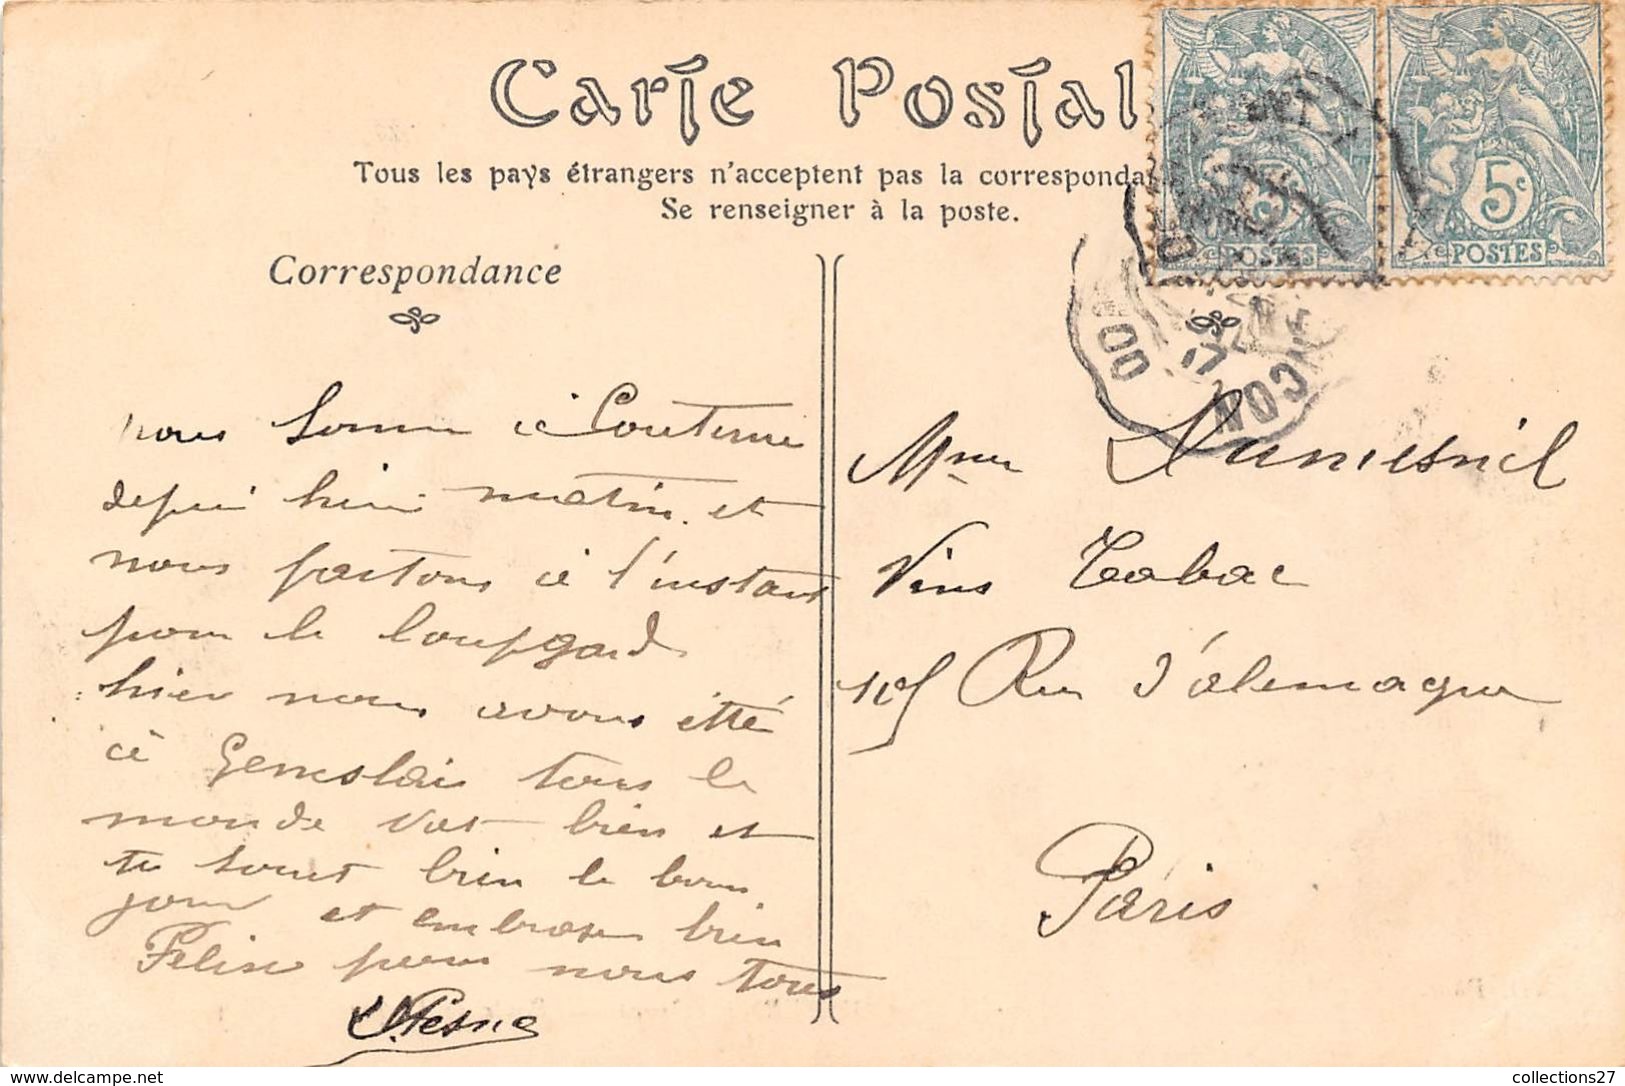 Carte Postal
Tous les pays étrangers n'acceptent pas la corresponda
Se renseigner à la poste.
Correspondance
nous somme à Couterne
depui hier matin et
nous partons à l'instant
pour le loupgard
hier nous avons étté
à Geneslai tous le
monde vat bien et
te souet bien le bon
jour et embrase bien
Felix pour nous tous
Mme Dumesnil
Vins Tabac
115 Rue d'alemague
Paris
5c
POSTES
5c
POSTES
collections27